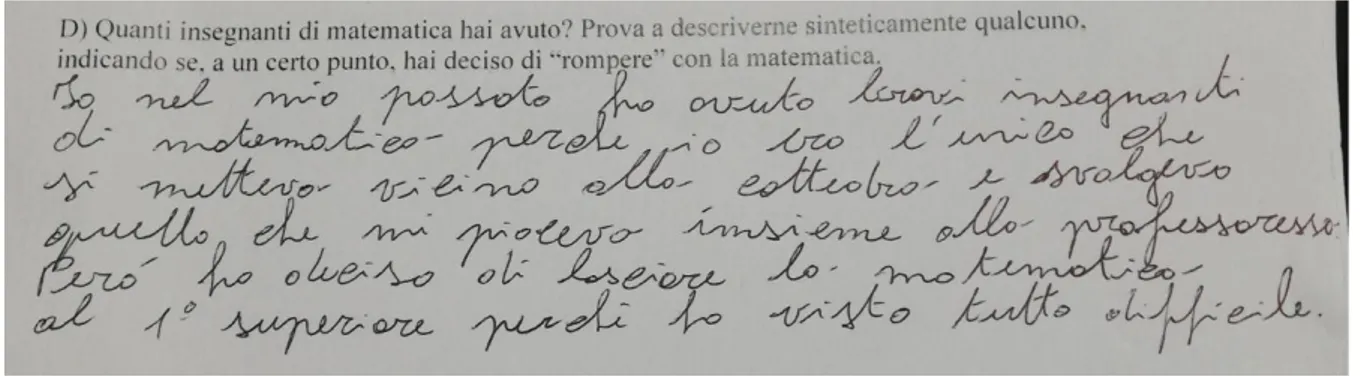 D) Quanti insegnanti di matematica hai avuto? Prova a descriverne sinteticamente qualcuno,
indicando se, a un certo punto, hai deciso di “rompere” con la matematica.
Io nel mio passato ho avuto bravi insegnanti
di matematica perche io ero l'unico che
si metteva vicino alla cattedra e svolgevo
quello che mi piaceva insieme alla professoressa.
Peró ho deciso di lasciare la matematica
al 1° superiore perché ho visto tutto difficile.